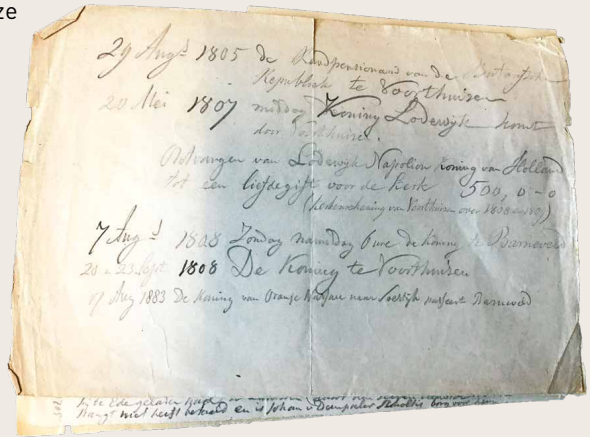 ze
29 Augt 1805 de Raadpensionaris van de Bataafsche
Republiek te Voorthuizen
20 Mei 1807 middag Koning Lodewijk komt
door Voorthuizen.
Ontvangen van Lodewijk Napoleon Koning van Holland
tot een liefdegift voor de Kerk 500,0-0
(Kerkerekening van Voorthuizen over 1808 en
7 Augt 1808 Zondag namiddag 6 ure de Koning te Barneveld
20 en 23 Sept. 1808 De Koning te Voorthuizen
17 Aug 1883 De Koning van Oranje Nassau naar Soestdijk Barneveld
niet heeft betaald en is Johan